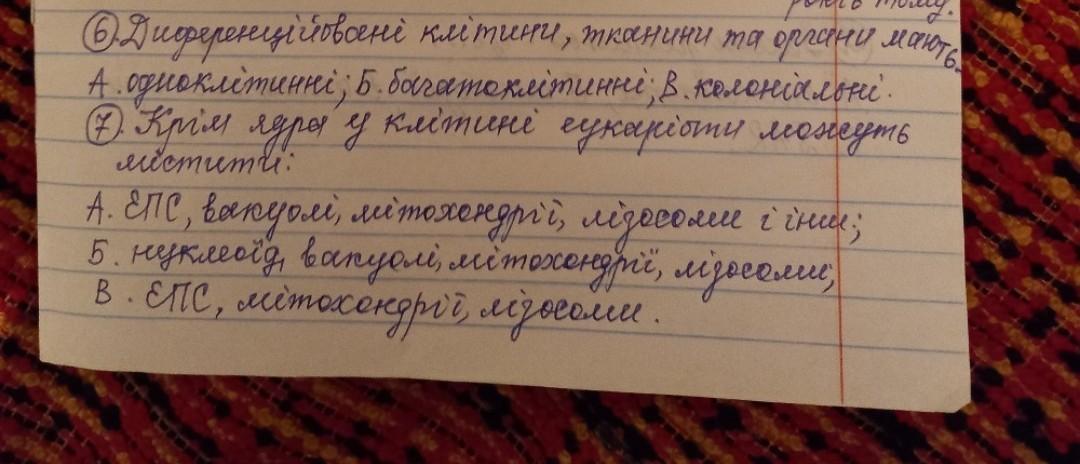 років тому.
6. Диференційовані клітини, тканини та органи мають
А. одноклітинні; Б. багатоклітинні; В. колоніальні.
7. Крім ядра у клітині еукаріоти можуть
містити:
А. ЕПС, вакуолі, мітохондрії, лізосоми і інш;
Б. нуклеоїд, вакуолі, мітохондрії, лізосоми;
В. ЕПС, мітохондрії, лізосоми.